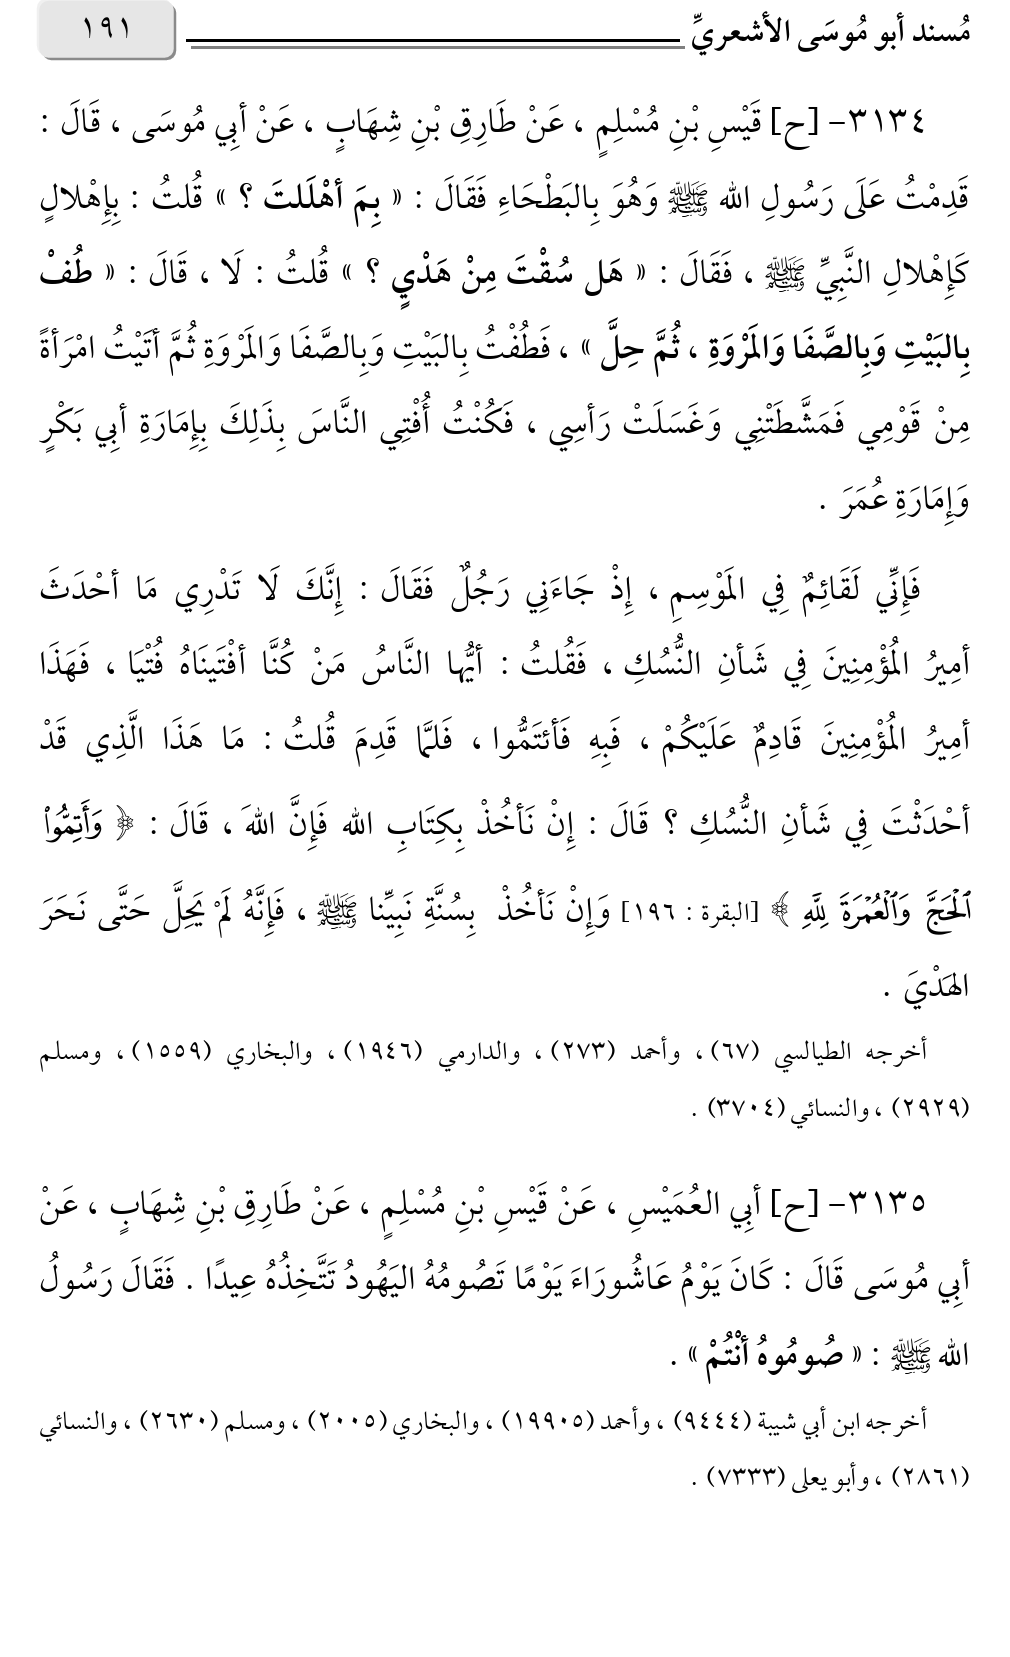 مُسند أبو مُوسَى الأشعريِّ ١٩١
٣١٣٤- [ح] قَيْسِ بْنِ مُسْلِمٍ ، عَنْ طَارِقِ بْنِ شِهَابٍ ، عَنْ أبِي مُوسَى ، قَالَ :
قَدِمْتُ عَلَى رَسُولِ الله ﷺ وَهُوَ بِالبَطْحَاءِ فَقَالَ : « بِمَ أهْلَلتَ ؟ » قُلتُ : بِإِهْلالٍ
كَإِهْلالِ النَّبِيِّ ﷺ ، فَقَالَ : « هَل سُقْتَ مِنْ هَدْيٍ ؟ » قُلتُ : لَا ، قَالَ : « طُفْ
بِالبَيْتِ وَبِالصَّفَا وَالمَرْوَةِ ، ثُمَّ حِلَّ » ، فَطُفْتُ بِالبَيْتِ وَبِالصَّفَا وَالمَرْوَةِ ثُمَّ أتَيْتُ امْرَأةً
مِنْ قَوْمِي فَمَشَّطَتْنِي وَغَسَلَتْ رَأسِي ، فَكُنْتُ أُفْتِي النَّاسَ بِذَلِكَ بِإِمَارَةِ أبِي بَكْرٍ
وَإِمَارَةِ عُمَرَ .
فَإِنِّي لَقَائِمٌ فِي المَوْسِمِ ، إِذْ جَاءَنِي رَجُلٌ فَقَالَ : إِنَّكَ لَا تَدْرِي مَا أحْدَثَ
أمِيرُ المُؤْمِنِينَ فِي شَأنِ النُّسُكِ ، فَقُلتُ : أيُّها النَّاسُ مَنْ كُنَّا أفْتَينَاهُ فُتْيَا ، فَهَذَا
أمِيرُ المُؤْمِنِينَ قَادِمٌ عَلَيْكُمْ ، فَبِهِ فَأئتَمُّوا ، فَلمَّا قَدِمَ قُلتُ : مَا هَذَا الَّذِي قَدْ
أحْدَثْتَ فِي شَأنِ النُّسُكِ ؟ قَالَ : إِنْ نَأخُذْ بِكِتَابِ الله فَإِنَّ اللهَ ، قَالَ : ﴿ وَأَتِمُّوا۟
ٱلْحَجَّ وَٱلْعُمْرَةَ لِلَّهِ ﴾ [البقرة : ١٩٦] وَإِنْ نَأخُذْ بِسُنَّةِ نَبِيِّنا ﷺ ، فَإِنَّهُ لَمْ يَحِلَّ حَتَّى نَحَرَ
الهَدْيَ .
أخرجه الطيالسي (٦٧) ، وأحمد (٢٧٣) ، والدارمي (١٩٤٦) ، والبخاري (١٥٥٩) ، ومسلم
(٢٩٢٩) ، والنسائي (٣٧٠٤) .
٣١٣٥- [ح] أبِي العُمَيْسِ ، عَنْ قَيْسِ بْنِ مُسْلِمٍ ، عَنْ طَارِقِ بْنِ شِهَابٍ ، عَنْ
أبِي مُوسَى قَالَ : كَانَ يَوْمُ عَاشُورَاءَ يَوْمًا تَصُومُهُ اليَهُودُ تَتَّخِذُهُ عِيدًا . فَقَالَ رَسُولُ
الله ﷺ : « صُومُوهُ أنْتُمْ » .
أخرجه ابن أبي شيبة (٩٤٤٤) ، وأحمد (١٩٩٠٥) ، والبخاري (٢٠٠٥) ، ومسلم (٢٦٣٠) ، والنسائي
(٢٨٦١) ، وأبو يعلى (٧٣٣٣) .